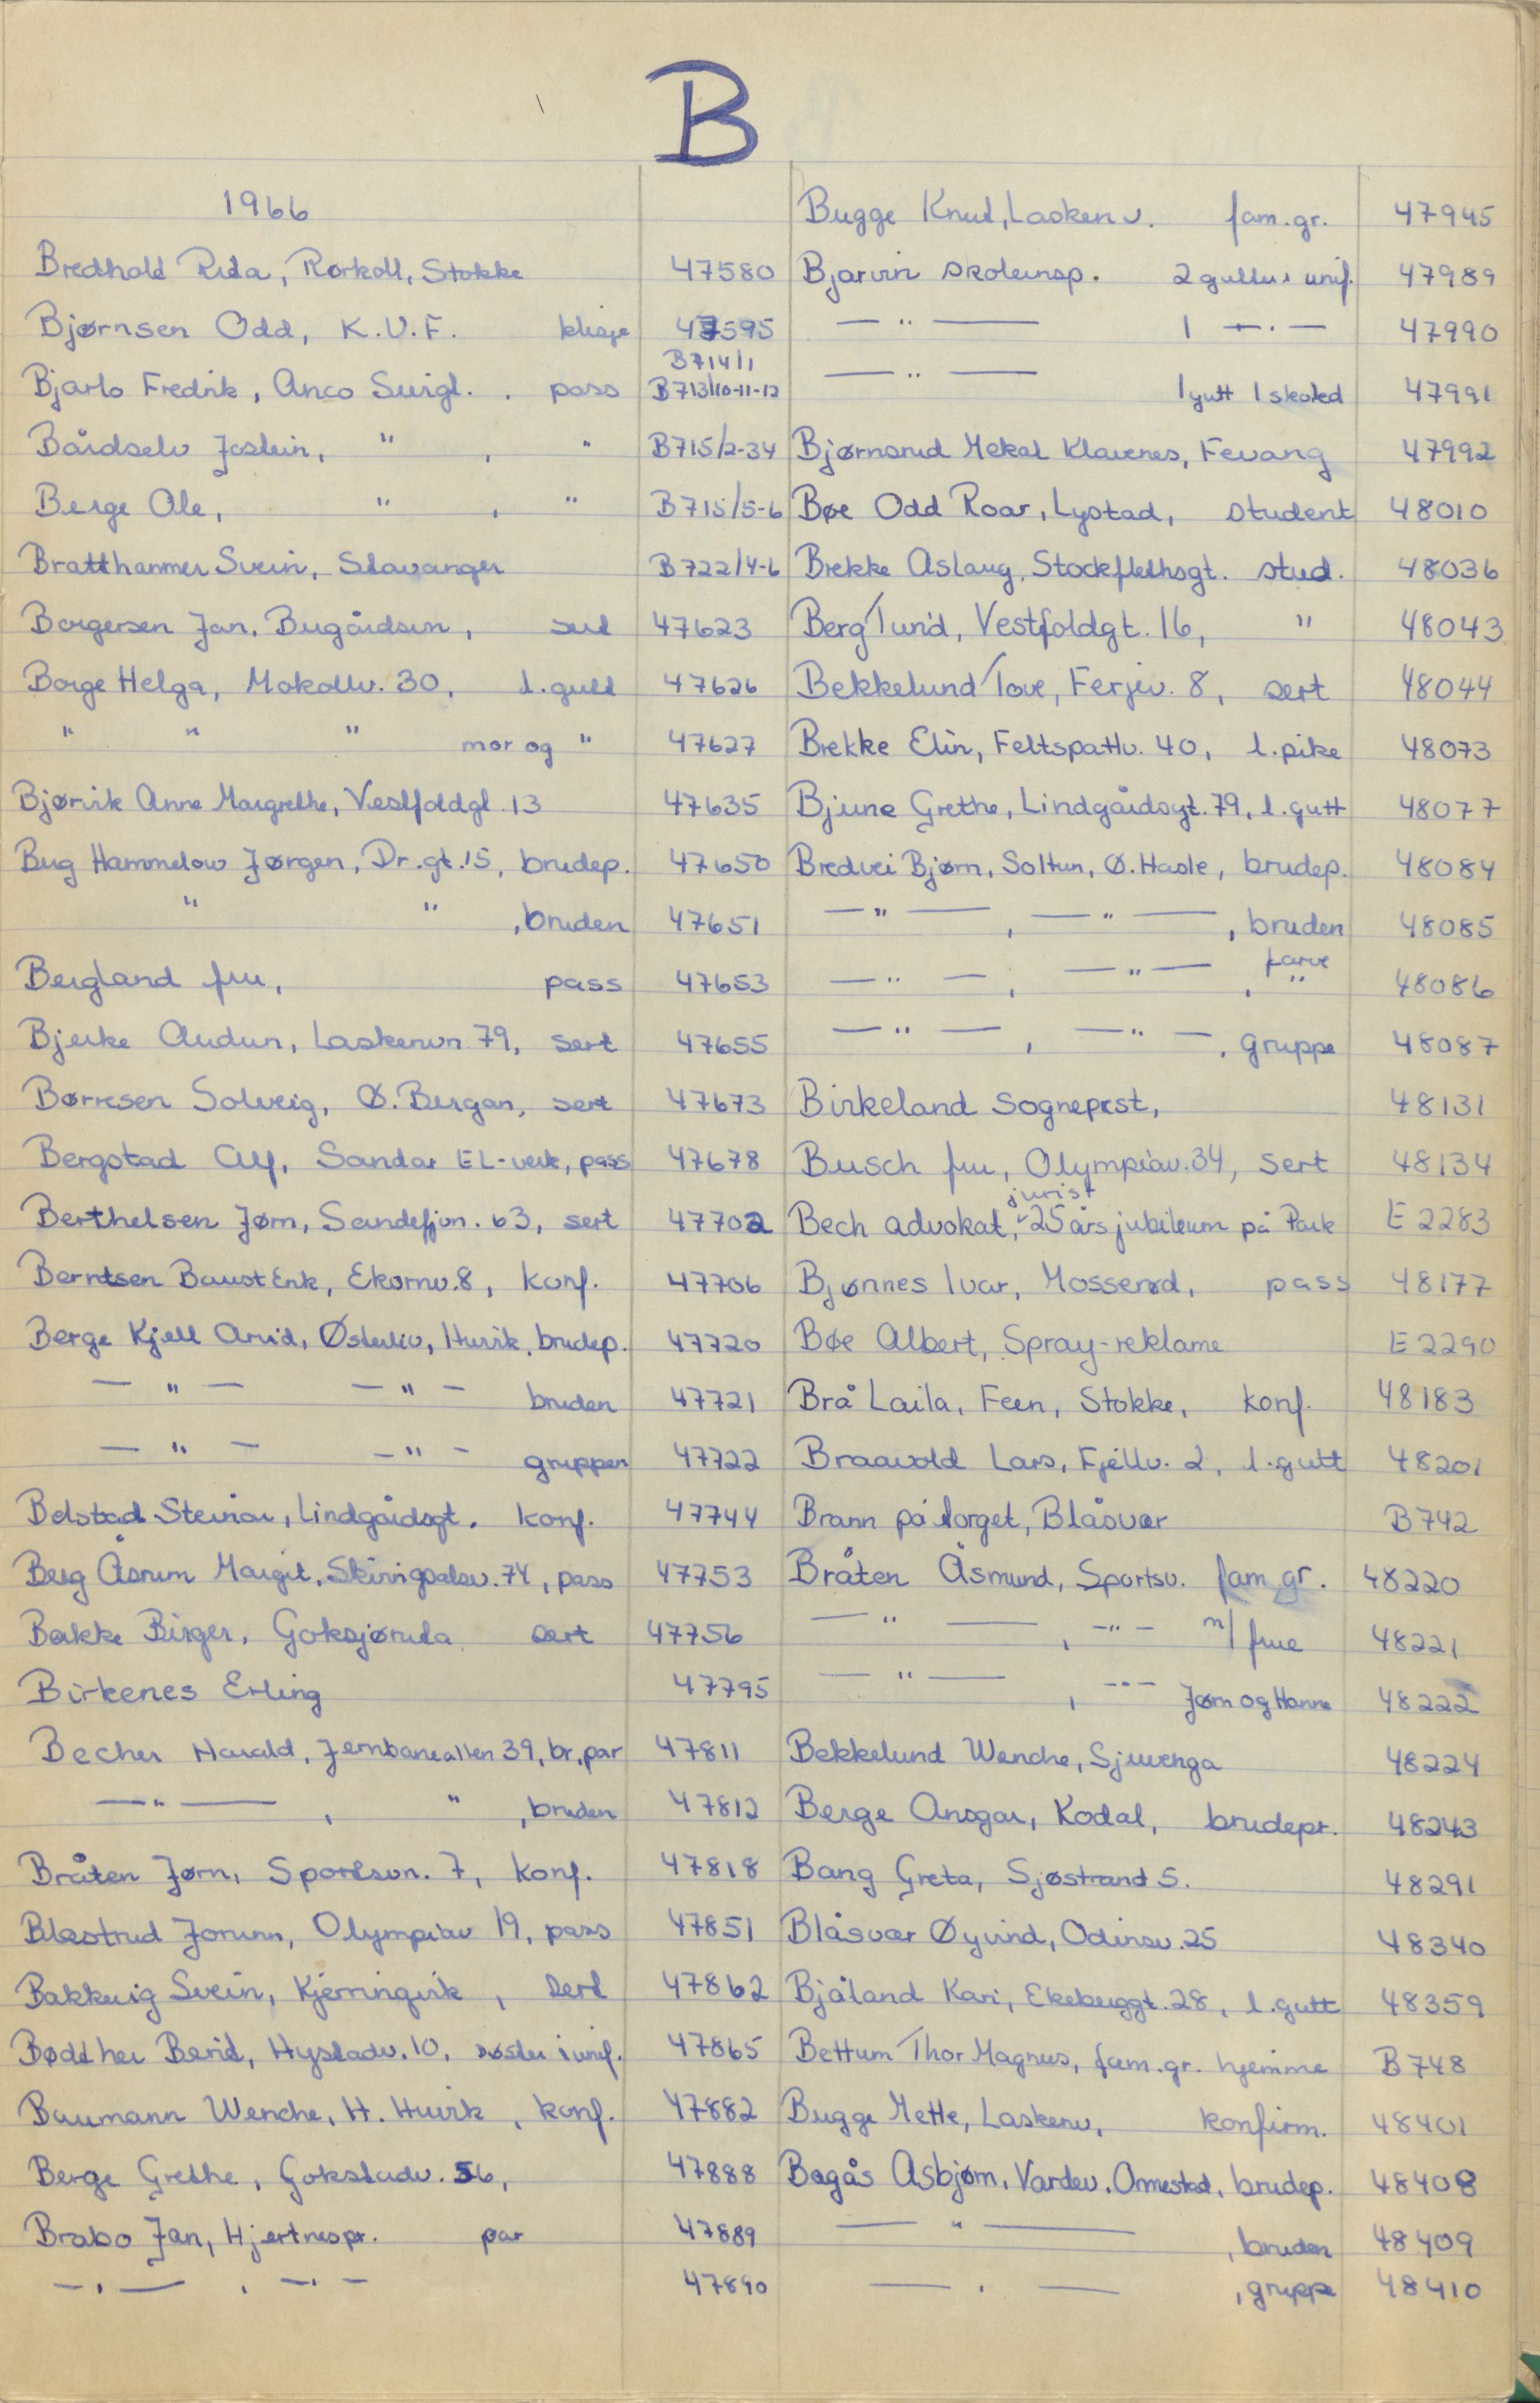 B
1966
Bredhold Rita, Rørkoll, Stokke 47580
Bjørnsen Odd, K.U.F. klisje 47595
B714/1
Bjarlo Fredrik, Anco Svigl. . pass B713/10-11-12
Bårdselv Jostein, " , " B715/2-34
Berge Ole, " , " B715/5-6
Bratthammer Svein, Stavanger B722/4-6
Borgersen Jan, Bugårdsvn, sert 47623
Borge Helga, Mokollv. 30, l.gutt 47626
" " " mor og " 47627
Bjørvik Anne Margrethe, Vestfoldgt. 13 47635
Bug Hammelow Jørgen, Dr.gt. 15, brudep. 47650
" " , bruden 47651
Bergland fru, pass 47653
Bjerke Audun, Laskervn 79, sert 47655
Børresen Solveig, Ø. Bergan, sert 47673
Bergstad Alf, Sandar EL-verk, pass 47678
Berthelsen Jørn, Sandefjvn. 63, sert 47702
Berntsen Baust Erik, Ekornv. 8, konf. 47706
Berge Kjell Arvid, Østerliv, Husvik, brudep. 47720
— " — — " — bruden 47721
— " — — " — gruppen 47722
Bolstad Steinar, Lindgårdsgt. konf. 47744
Berg Åsrum Margit, Skiringsalsv. 74, pass 47753
Bakke Birger, Goksjøruta, sert 47756
Birkenes Erling 47795
Becher Harald, Jernbanealleen 39, br.par 47811
— " — , " , bruden 47812
Bråten Jørn, Sportsvn. 7, konf. 47818
Blastrud Jorunn, Olympiav 19, pass 47851
Bakkvig Svein, Kjerringvik, sert 47862
Bødther Berit, Hystadv. 10, søster i unif. 47865
Baumann Wenche, H. Husvik, konf. 47882
Berge Grethe, Gokstadv. 56, 47888
Brabo Jan, Hjertnespr. par 47889
— " — , — " — 47890
Bugge Knut, Laskerv. fam.gr. 47945
Bjarvin skoleinsp. 2 gutter unif. 47989
— " — 1 — " — 47990
— " — 1 gutt 1 skoled 47991
Bjørnsrud Mekal Klavenes, Fevang 47992
Bøe Odd Roar, Lystad, student 48010
Brekke Aslaug, Stockflethsgt. stud. 48036
Berg Turid, Vestfoldgt. 16, " 48043
Bekkelund Tove, Ferjev. 8, sert 48044
Brekke Elin, Feltspattv. 40, l.pike 48073
Bjune Grethe, Lindgårdsgt. 79, l.gutt 48077
Bredvei Bjørn, Soltun, Ø. Hasle, brudep. 48084
— " — , — " — , bruden 48085
— " — , — " — , farve " 48086
— " — , — " — , gruppe 48087
Birkeland sogneprest, 48131
Busch fru, Olympiav. 34, sert 48134
Bech advokat, jurist 25 års jubileum på Park E 2283
Bjønnes Ivar, Mosserød, pass 48177
Bøe Albert, Spray-reklame E 2290
Brå Laila, Feen, Stokke, konf. 48183
Braavold Lars, Fjellv. 2, l.gutt 48201
Brann på torget, Blåsvær B742
Bråten Åsmund, Sportsv. fam.gr. 48220
— " — , — " — m/ frue 48221
— " — , — " — Jørn og Hanne 48222
Bekkelund Wenche, Sjuvenga 48224
Berge Ansgar, Kodal, brudepr. 48243
Bang Greta, Sjøstrand S. 48291
Blåsvær Øyvind, Odinsv. 25 48340
Bjåland Kari, Ekebergt. 28, l.gutt 48359
Bettum Thor Magnus, fam.gr. hjemme B748
Bugge Mette, Laskerv, konfirm. 48401
Bøgås Asbjørn, Vardev. Ormestad, brudep. 48408
— " — , bruden 48409
— " — , gruppe 48410